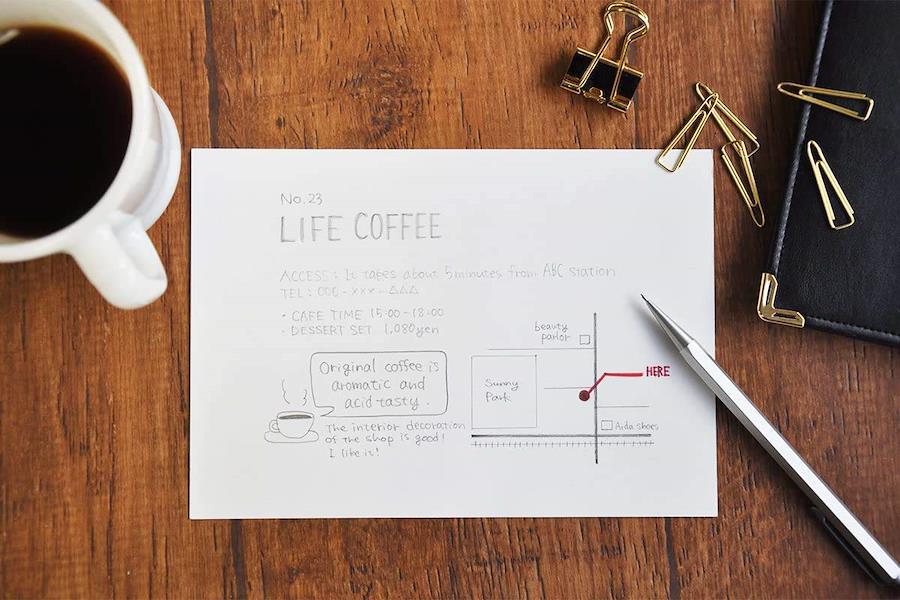 No.23
LIFE COFFEE
ACCESS : It takes about 5minutes from ABC station
TEL : 000-×××-△△△
・CAFE TIME 15:00-18:00
・DESSERT SET 1,080yen
Original coffee is
aromatic and
acid-tasty.
The interior decoration
of the shop is good!
I like it!
beauty
parlor
HERE
Sunny
Park
Aida shoes